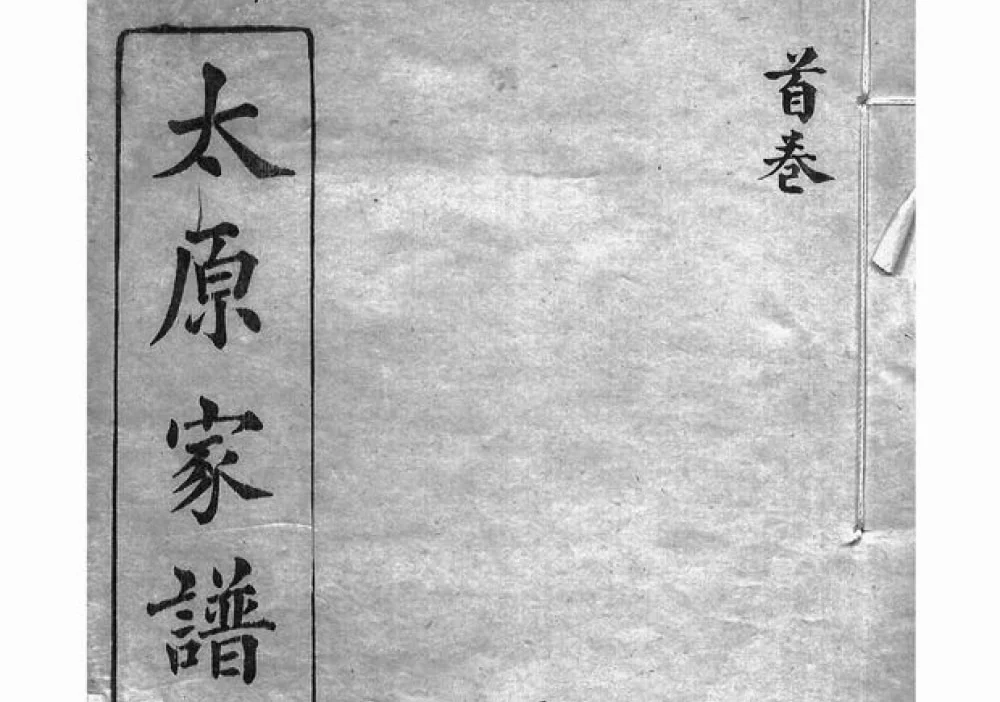 首卷
太原家譜